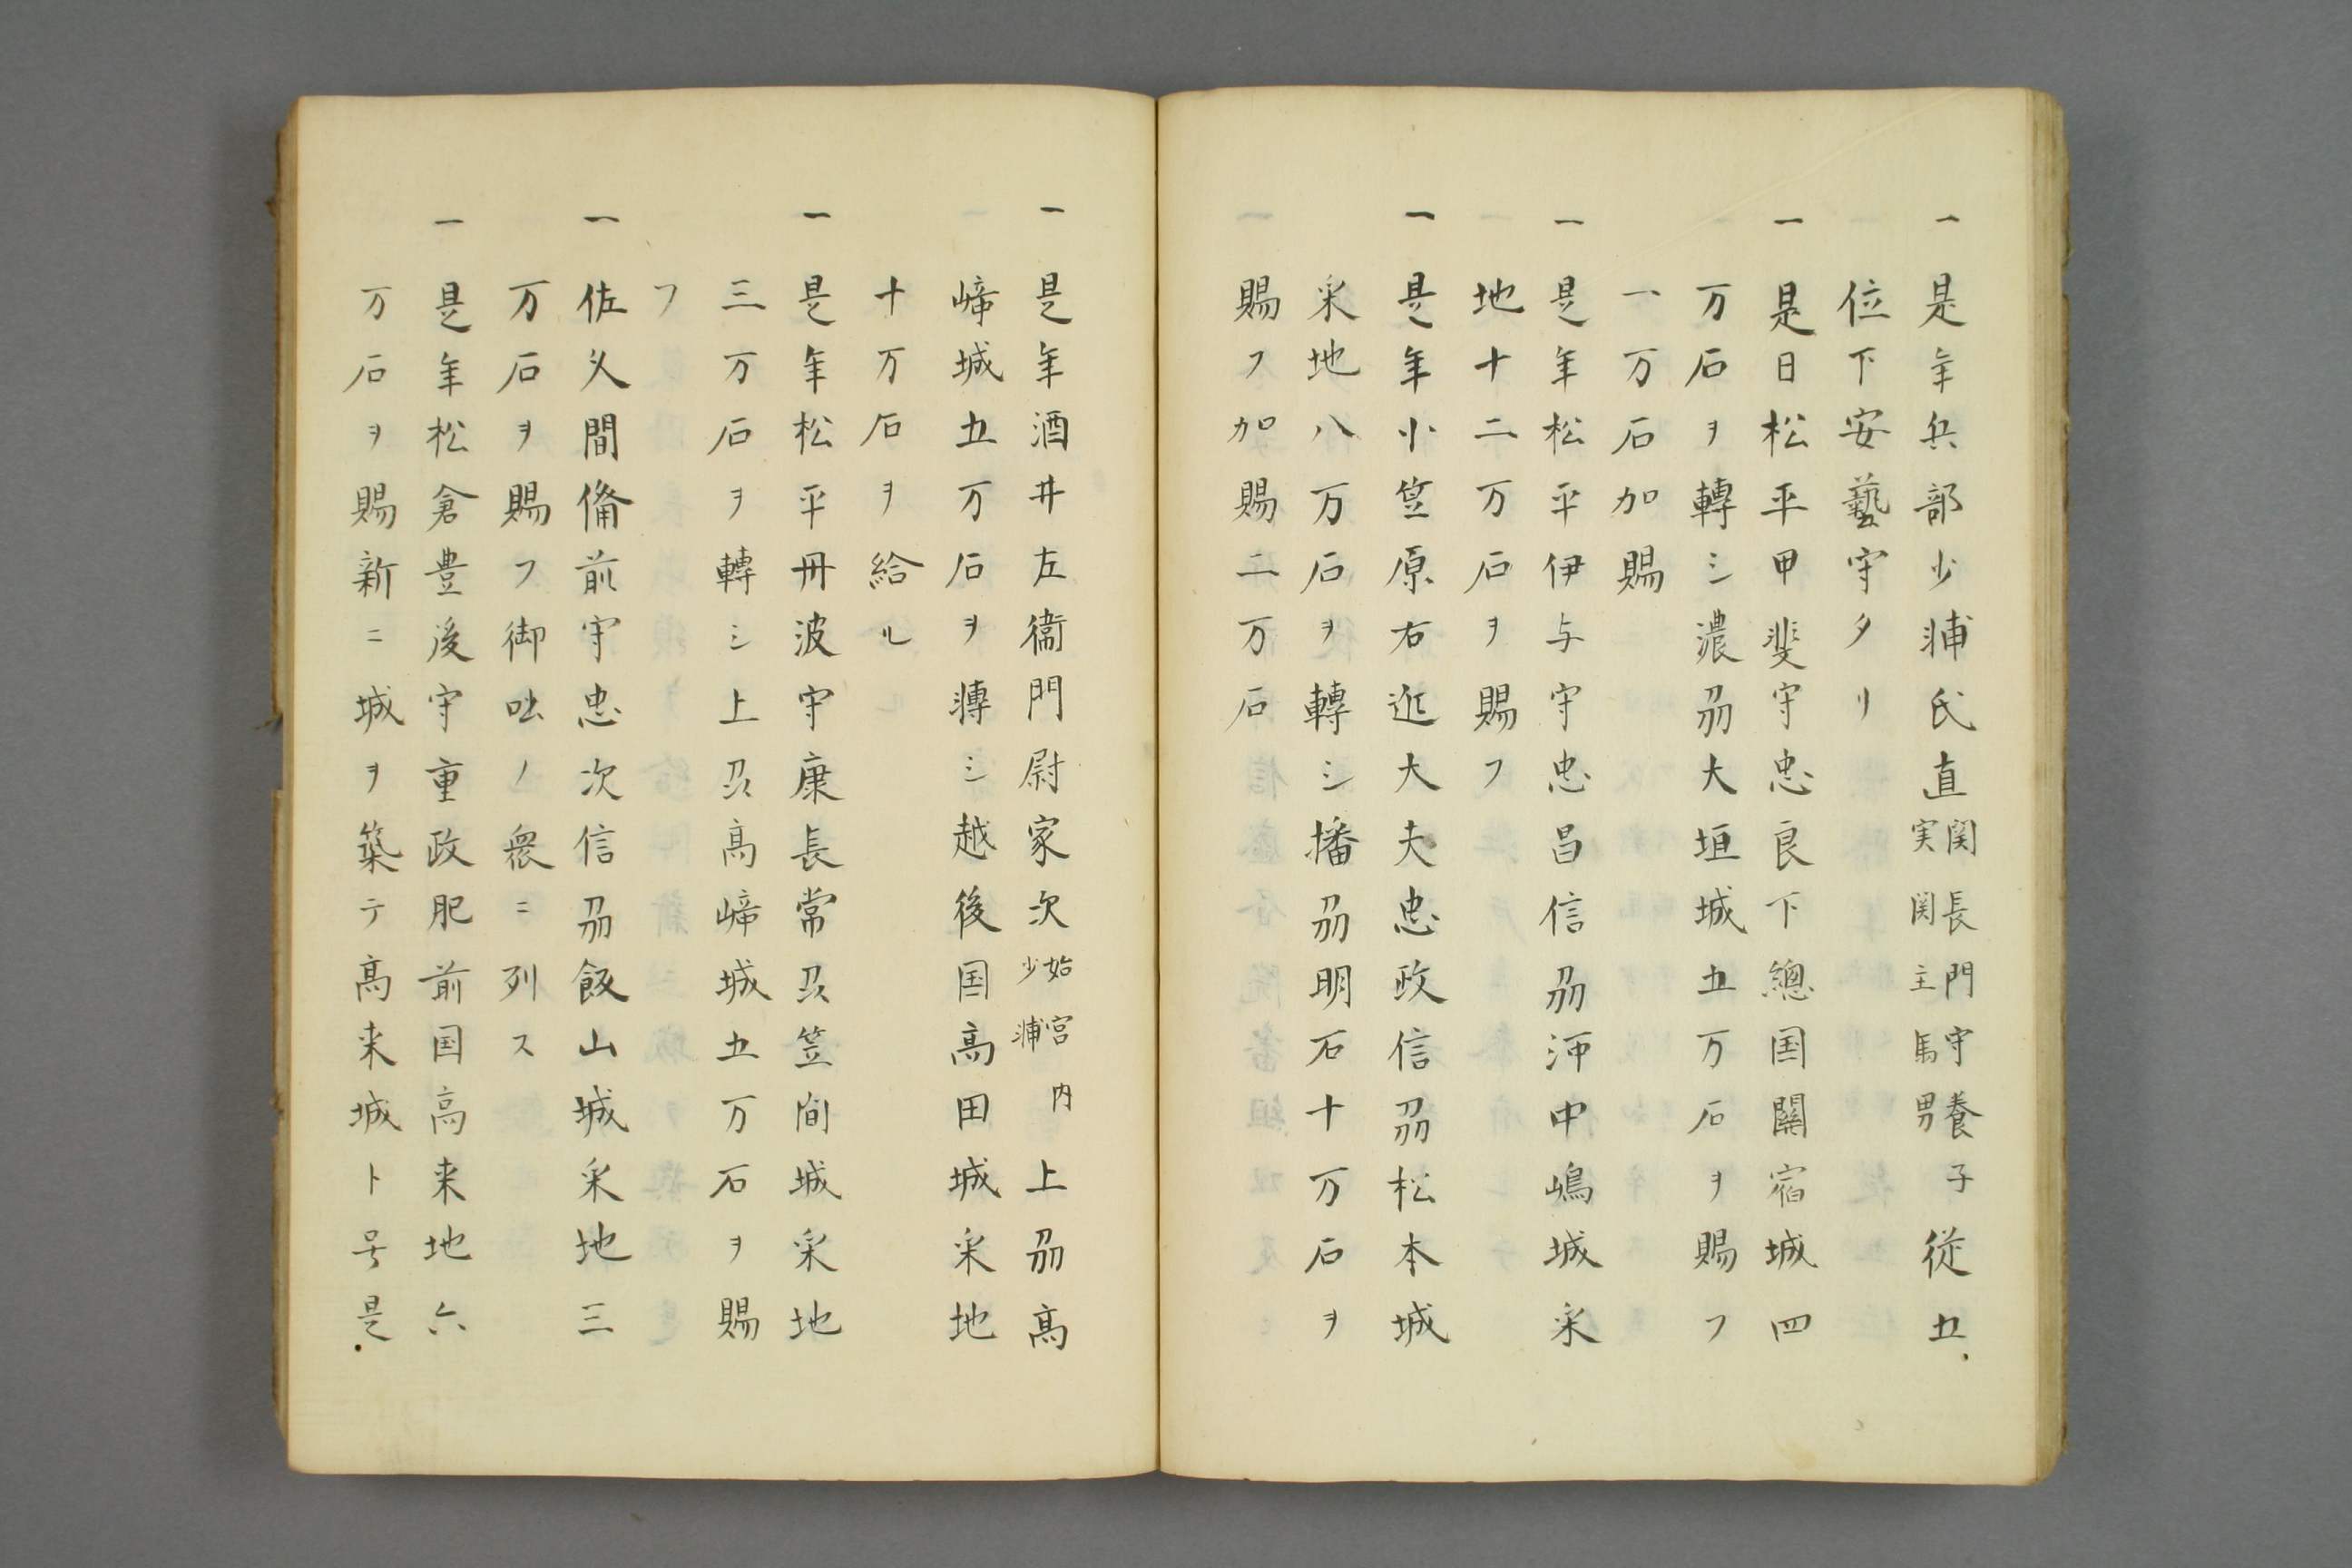 一是年兵部少浦氏直関長門守養子実関主馬男従五
位下安藝守タリ
一是日松平甲斐守忠良下總国關宿城四
万石ヲ轉シ濃刕大垣城五万石ヲ賜フ
一万石加賜
一是年松平伊与守忠昌信刕河中嶋城采
地十二万石ヲ賜フ
一是年小笠原右近大夫忠政信刕松本城
采地八万石ヲ轉シ播刕明石十万石ヲ
賜フ加賜二万石
一是年酒井左衞門尉家次始宮内少浦上刕高
﨑城五万石ヲ轉シ越後国高田城采地
十万石ヲ給ル
一是年松平丹波守康長常刕笠間城采地
三万石ヲ轉シ上刕高﨑城五万石ヲ賜
フ
一佐久間備前守忠次信刕飯山城采地三
万石ヲ賜フ御咄ノ衆ニ列ス
一是年松倉豊後守重政肥前国高来地六
万石ヲ賜新ニ城ヲ築テ高来城ト号是